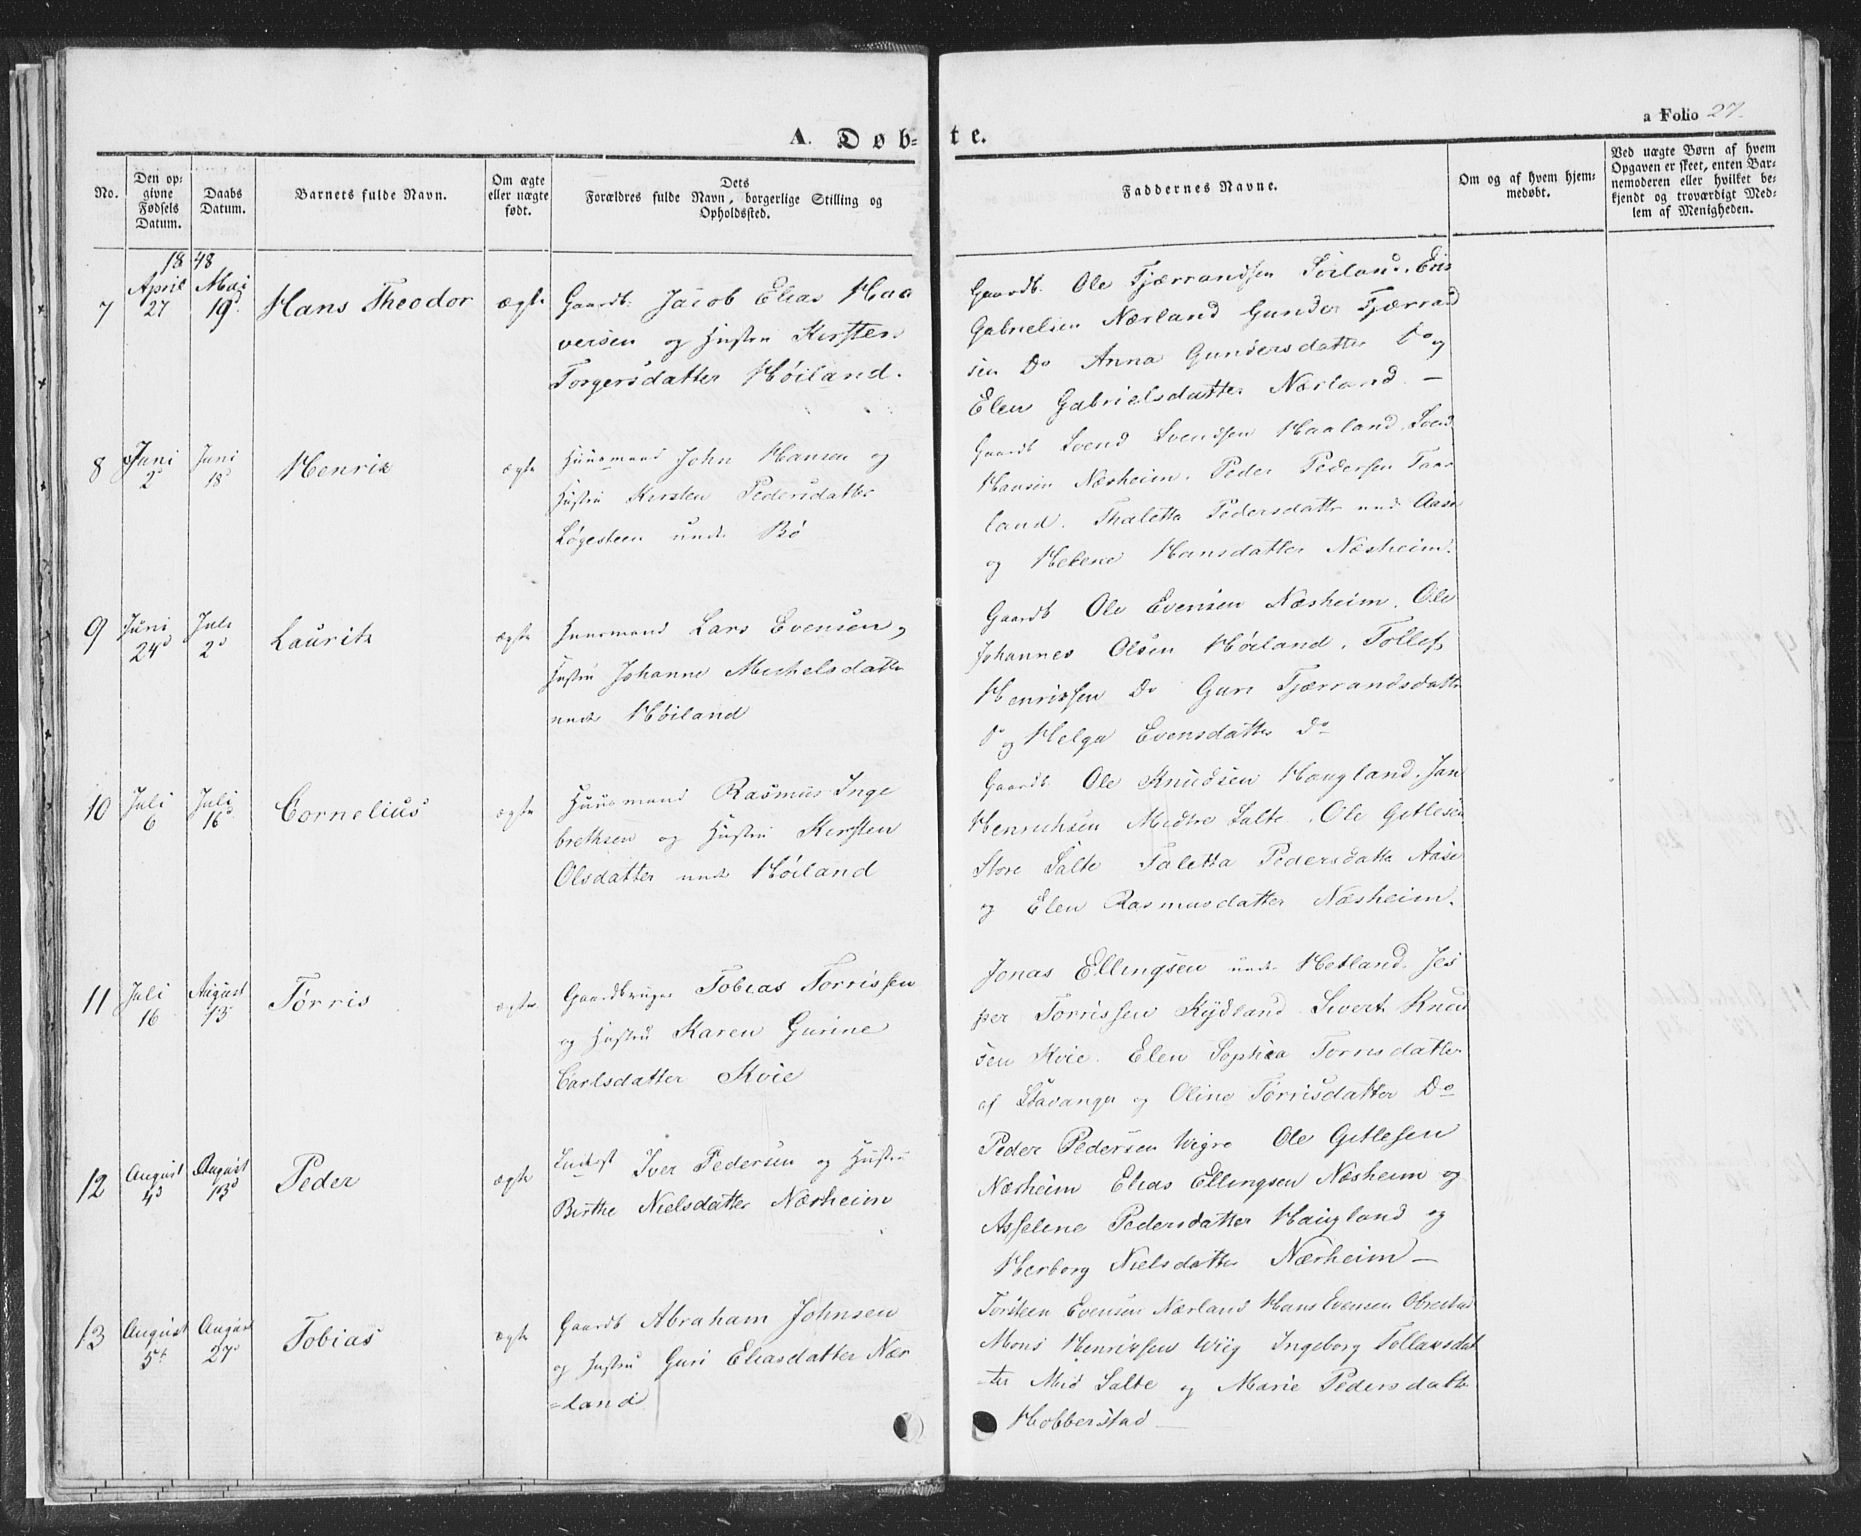 a Folio 27.
A. Døb-
te.
No.
Den op-
givne
Fødsels
Datum.
Daabs
Datum.
Barnets fulde Navn.
Om ægte
eller uægte
født.
Dets
Forældres fulde Navn, borgerlige Stilling og
Opholdssted.
Faddernes Navne.
Om og af hvem hjem-
medøbt.
Ved uægte Børn af hvem
Opgaven er skeet, enten Bar-
nemoderen eller hvilket be-
kjendt og troværdigt Med-
lem af Menigheden.
1848
7
April
27
Mai
19d
Hans Theodor
ægte
Gaardb. Jacob Elias Haa
versen og Hustru Kirsten
Torgersdatter Høiland.
Gaardb. Ole Tjærrandsen
Gabrielsen Nærland Gunder Tjærrand
sen Do Anna Gundersdatter Do og
Elen Gabrielsdatter Nærland. —
8
Juni
2d
Juni
18d
Henrik
ægte
Huusmand John Hansen og
Hustru Kirsten Pedersdatter
Løgesteen under Bø
Gaardb Svend Svendsen Haaland. Svend
Hansen Næsheim. Peder Pedersen Taar
land. Thaletta Pedersdattr und Aase
og Helene Hansdatter Næsheim.
9
Juni
24d
Juli
2d
Lauritz
ægte
Huusmand Lars Evensen og
Hustru Johanne Michelsdatter
under Høiland
Gaardb Ole Evensen Næsheim. Ole
Johannes Olsen Høiland. Tollef
Henrissen Do Guri Tjærrandsdatter
Do og Helga Evensdatter Do
10
Juli
6
Juli
16d
Cornelius
ægte
Huusmand Rasmus Inge
brethsen og Hustru Kirsten
Olsdatter under Høiland
Gaardb. Ole Knudsen Haugland. Jan
Henrichsen Midtre Salte. Ole Gitlesen
Store Salte Taletta Pedersdatter Aase
og Elen Rasmusdatter Næsheim.
11
Juli
16
August
13
Tørris
ægte
Gaardbruger Tobias Torrissen
og Hustru Karen Gurine
Carlsdatter Kvie
Jonas Ellingsen under Hetland. Jes
per Torrissen Kydland Sivert Knud
sen Kvie. Elen Sophia Torrisdatter
af Stavanger og Oline Tørrisdatter Do
12
August
4d
August
13d
Peder
ægte
Iver Pedersen og Hustru
Birthe Nielsdatter Nærheim
Peder Pedersen Wigre Ole Gitlesen
Nærheim Elias Ellingsen Næsheim og
Asselene Pedersdatter Haugland og
Herborg Nielsdatter Nærheim —
13
August
5t
August
27d
Tobias
ægte
Gaardb Abraham Johnsen
og Hustru Guri Eliasdatter Nær
-land
Torsteen Evensen Nærland Hans Evensen Obrestad
Mons Henrissen Wiig Ingeborg Tollaksdat
-ter Mid Salte og Marie Pedersdatter
Hobberstad —